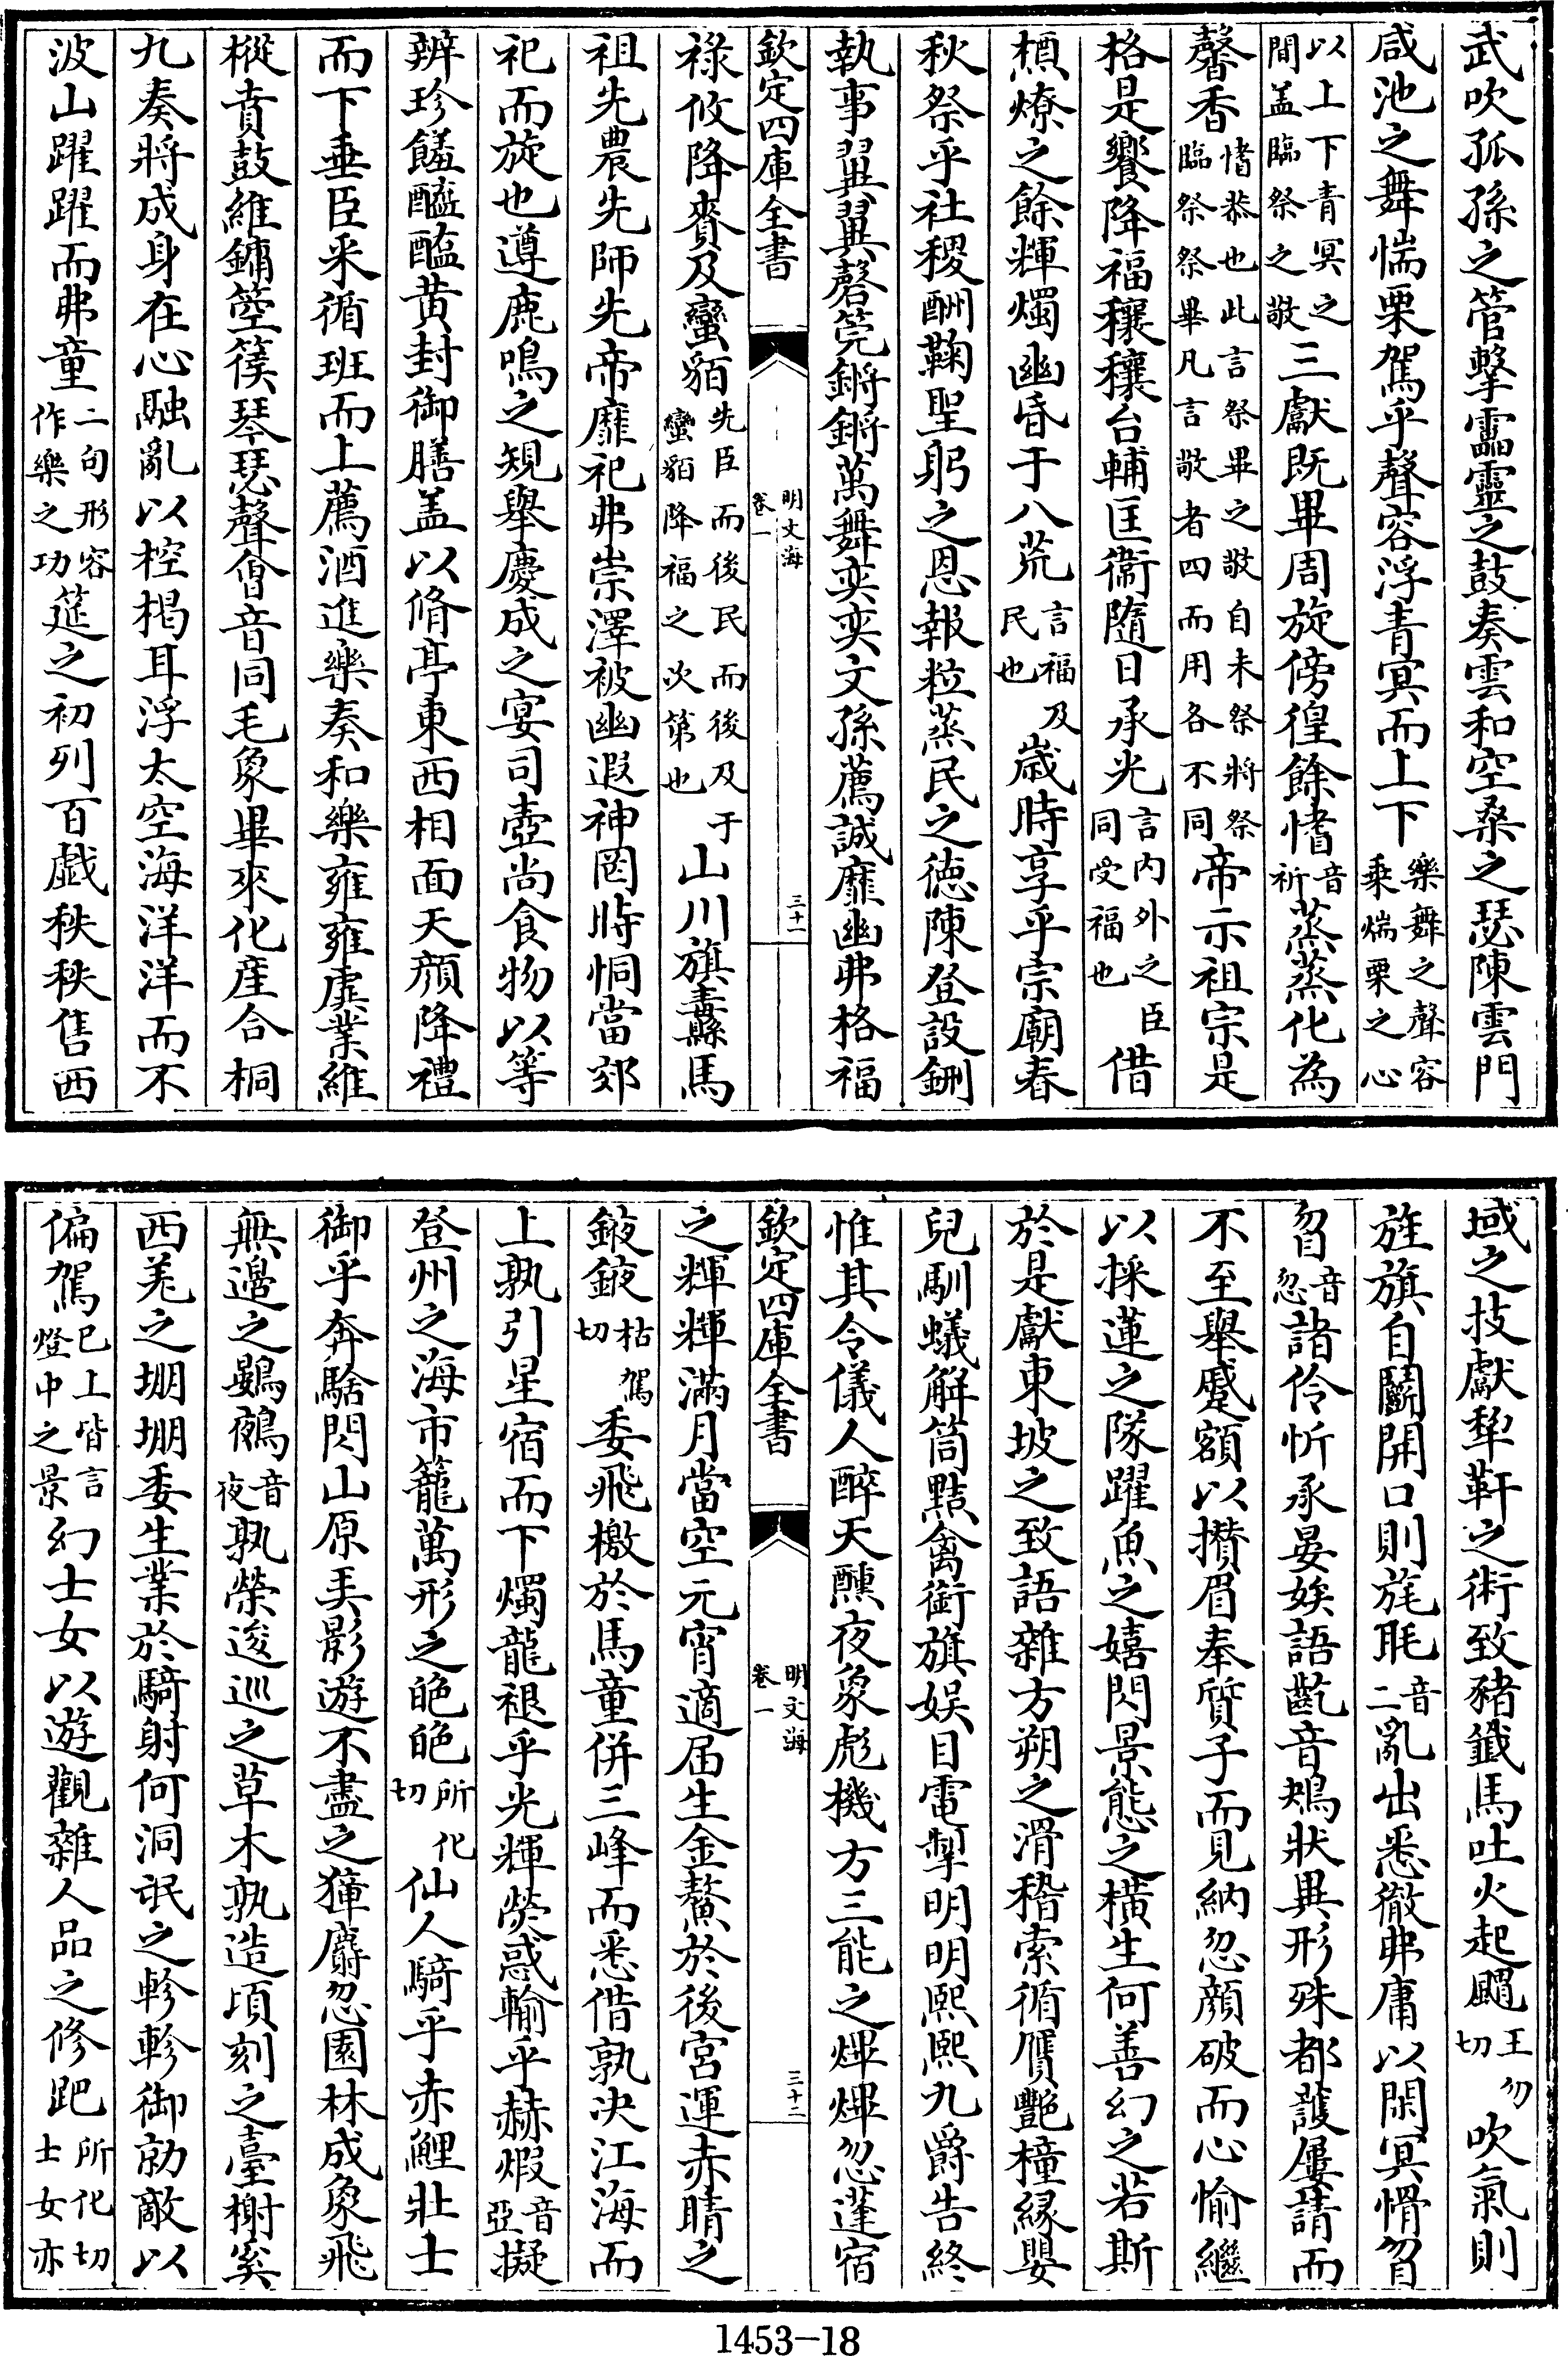 武吹孤孫之管擊靁靈之鼓奏雲和空桑之瑟陳雲門
咸池之舞惴栗駕乎聲容浮青冥而上下樂舞之聲容乗惴栗之心
以上下青冥之間盖臨祭之敬三獻既畢周旋傍徨餘愭音祈蒸蒸化為
馨香愭恭也此言祭畢之敬自未祭將祭臨祭祭畢凡言敬者四而用各不同帝示祖宗是
格是饗降福穰穰台輔匡衞隨日承光言内外之臣同受福也借
槱燎之餘輝燭幽昏于八荒言福及民也歳時享乎宗廟春
秋祭乎社稷酬鞠聖躬之恩報粒蒸民之徳陳登設鉶
執事翼翼磬筦鏘鏘萬舞奕奕文孫薦誠靡幽弗格福
欽定四庫全書 明文海 卷一 三十一
祿攸降賚及蠻貊先臣而後民而後及于蠻貊降福之次第也山川旗纛縣馬
祖先農先師先帝靡祀弗崇澤被幽遐神罔時恫當郊
祀而旋也遵鹿鳴之規舉慶成之宴司壺尚食物以等
辨珍饈醽醖黄封御膳盖以脩亭東西相面天顔降禮
而下垂臣釆循班而上薦酒進樂奏和樂雍雍虡業維
樅賁鼓維鏞箜篌琴瑟聲㑹音同毛象畢來化産合桐
九奏將成身在心融亂以椌楬耳浮太空海洋洋而不
波山躍躍而弗童二句形容作樂之功筵之初列百戯秩秩售西
域之技獻犂靬之術致豬鐵馬吐火起䬍王勿切吹氣則
旌旗自鬬開口則旄毦二音亂出悉徹弗庸以閑㝠愲曶
曶音忽諸伶忻承晏娭語齕音鴂狀異形殊都䕶屢請而
不至舉蹙額以攢眉奉質子而見納忽顔破而心愉繼
以採蓮之隊躍魚之嬉閃景態之橫生何善幻之若斯
於是獻東坡之致語雜方朔之滑稽索循贋艷橦縁嬰
兒馴蟻解筒黠禽銜旗娱目電掣明明熙熙九爵告終
惟其令儀人醉天醺夜象彪機方三能之燡燡忽蓬宿
欽定四庫全書 明文海 卷一 三十二
之輝輝滿月當空元宵適届生金鰲於後宮運赤睛之
鈹鈹枯駕切委飛檄於馬童併三峰而悉借孰決江海而
上孰引星宿而下燭龍褪乎光輝熒惑輸乎赫煆音亞擬
登州之海市籠萬形之皅皅所化切仙人騎乎赤鯉壯士
御乎奔䮫閃山原兵影遊不盡之獐麝忽園林成象飛
無邉之鷃鵺音夜孰榮逡巡之草木孰造頃刻之臺榭奚
西羌之堋堋委生業於騎射何洞氓之軫軫御勍敵以
偏駕已上皆言燈中之景幻士女以遊觀雜人品之修跁所化切士女亦
1453-18